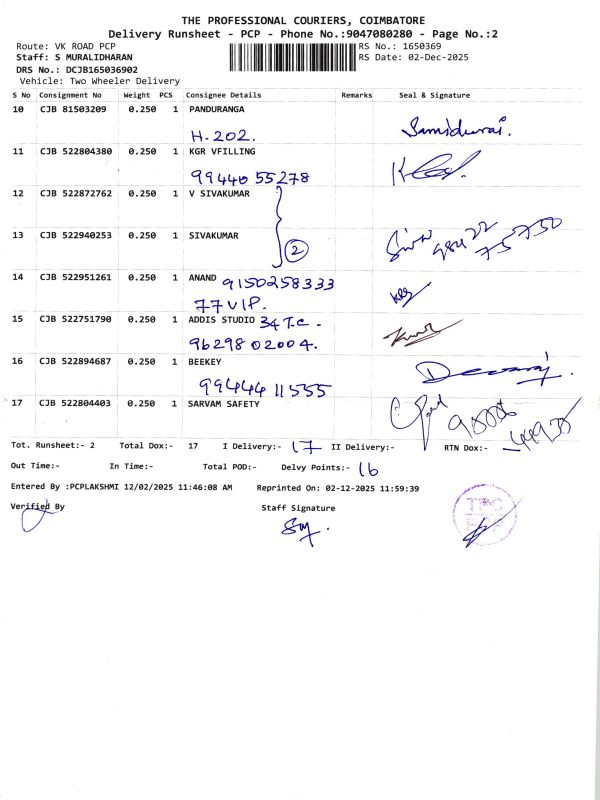 THE PROFESSIONAL COURIERS, COIMBATORE
Delivery Runsheet - PCP - Phone No.:9047080280 - Page No.:2
Route: VK ROAD PCP
RS No.: 1650369
Staff: S MURALIDHARAN
RS Date: 02-Dec-2025
DRS No.: DCJB165036902
Vehicle: Two Wheeler Delivery
S No Consignment No Weight PCS Consignee Details Remarks Seal & Signature
10 CJB 81503209 0.250 1 PANDURANGA
H.202.
11 CJB 522804380 0.250 1 KGR VFILLING
99440 55278
12 CJB 522872762 0.250 1 V SIVAKUMAR
13 CJB 522940253 0.250 1 SIVAKUMAR
2
Siva 98422
75750
14 CJB 522951261 0.250 1 ANAND 9150258333
77 VIP.
15 CJB 522751790 0.250 1 ADDIS STUDIO 34 T.C.
96298 02004.
16 CJB 522894687 0.250 1 BEEKEY
99444 11555
17 CJB 522804403 0.250 1 SARVAM SAFETY
Tot. Runsheet:- 2 Total Dox:- 17 I Delivery:- 17 II Delivery:- RTN Dox:-
Out Time:- In Time:- Total POD:- Delvy Points:- 16
Entered By :PCPLAKSHMI 12/02/2025 11:46:08 AM Reprinted On: 02-12-2025 11:59:39
Verified By Staff Signature